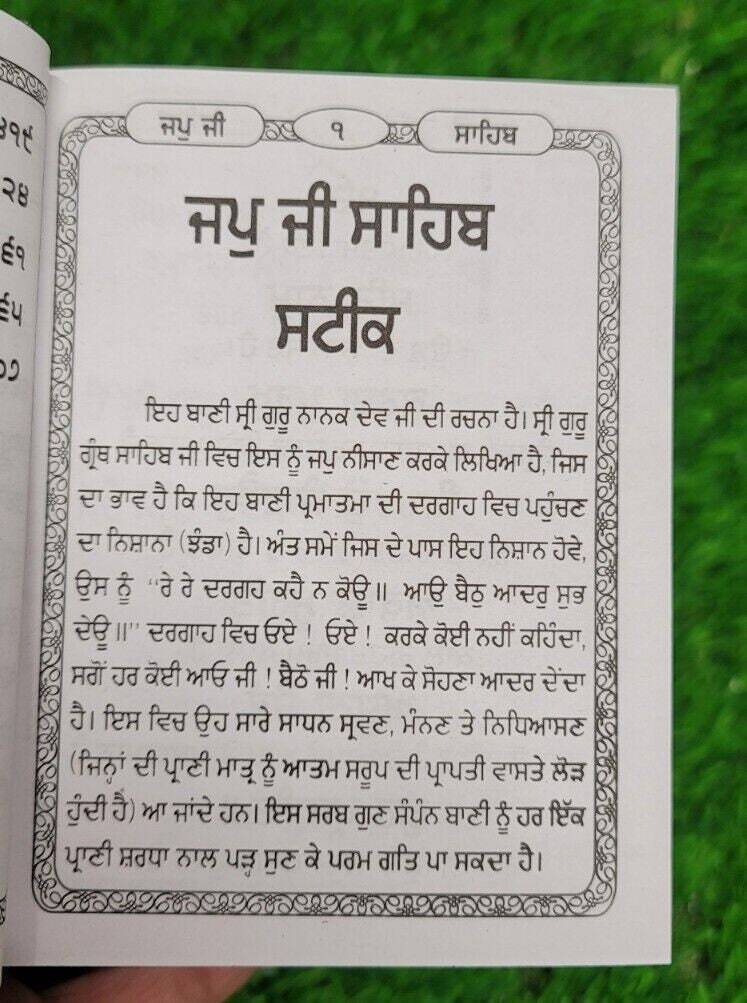 ੪੧੯
੨੪
੬੧
੬੫
੦੭
ਜਪੁ ਜੀ
੧
ਸਾਹਿਬ
ਜਪੁ ਜੀ ਸਾਹਿਬ
ਸਟੀਕ
ਇਹ ਬਾਣੀ ਸ੍ਰੀ ਗੁਰੂ ਨਾਨਕ ਦੇਵ ਜੀ ਦੀ ਰਚਨਾ ਹੈ। ਸ੍ਰੀ ਗੁਰੂ
ਗ੍ਰੰਥ ਸਾਹਿਬ ਜੀ ਵਿਚ ਇਸ ਨੂੰ ਜਪੁ ਨੀਸਾਣ ਕਰਕੇ ਲਿਖਿਆ ਹੈ, ਜਿਸ
ਦਾ ਭਾਵ ਹੈ ਕਿ ਇਹ ਬਾਣੀ ਪ੍ਰਮਾਤਮਾ ਦੀ ਦਰਗਾਹ ਵਿਚ ਪਹੁੰਚਣ
ਦਾ ਨਿਸ਼ਾਨਾ (ਝੰਡਾ) ਹੈ। ਅੰਤ ਸਮੇਂ ਜਿਸ ਦੇ ਪਾਸ ਇਹ ਨਿਸ਼ਾਨ ਹੋਵੇ,
ਉਸ ਨੂੰ ‘‘ਰੇ ਰੇ ਦਰਗਹ ਕਹੈ ਨ ਕੋਊ॥ ਆਉ ਬੈਠੁ ਆਦਰੁ ਸੁਭ
ਦੇਊ॥’’ ਦਰਗਾਹ ਵਿਚ ਓਏ ! ਓਏ ! ਕਰਕੇ ਕੋਈ ਨਹੀਂ ਕਹਿੰਦਾ,
ਸਗੋਂ ਹਰ ਕੋਈ ਆਓ ਜੀ ! ਬੈਠੋ ਜੀ ! ਆਖ ਕੇ ਸੋਹਣਾ ਆਦਰ ਦੇਂਦਾ
ਹੈ। ਇਸ ਵਿਚ ਉਹ ਸਾਰੇ ਸਾਧਨ ਸ੍ਰਵਣ, ਮੰਨਣ ਤੇ ਨਿਧਿਆਸਣ
(ਜਿਨ੍ਹਾਂ ਦੀ ਪ੍ਰਾਣੀ ਮਾਤ੍ਰ ਨੂੰ ਆਤਮ ਸਰੂਪ ਦੀ ਪ੍ਰਾਪਤੀ ਵਾਸਤੇ ਲੋੜ
ਹੁੰਦੀ ਹੈ) ਆ ਜਾਂਦੇ ਹਨ। ਇਸ ਸਰਬ ਗੁਣ ਸੰਪੰਨ ਬਾਣੀ ਨੂੰ ਹਰ ਇੱਕ
ਪ੍ਰਾਣੀ ਸ਼ਰਧਾ ਨਾਲ ਪੜ੍ਹ ਸੁਣ ਕੇ ਪਰਮ ਗਤਿ ਪਾ ਸਕਦਾ ਹੈ।